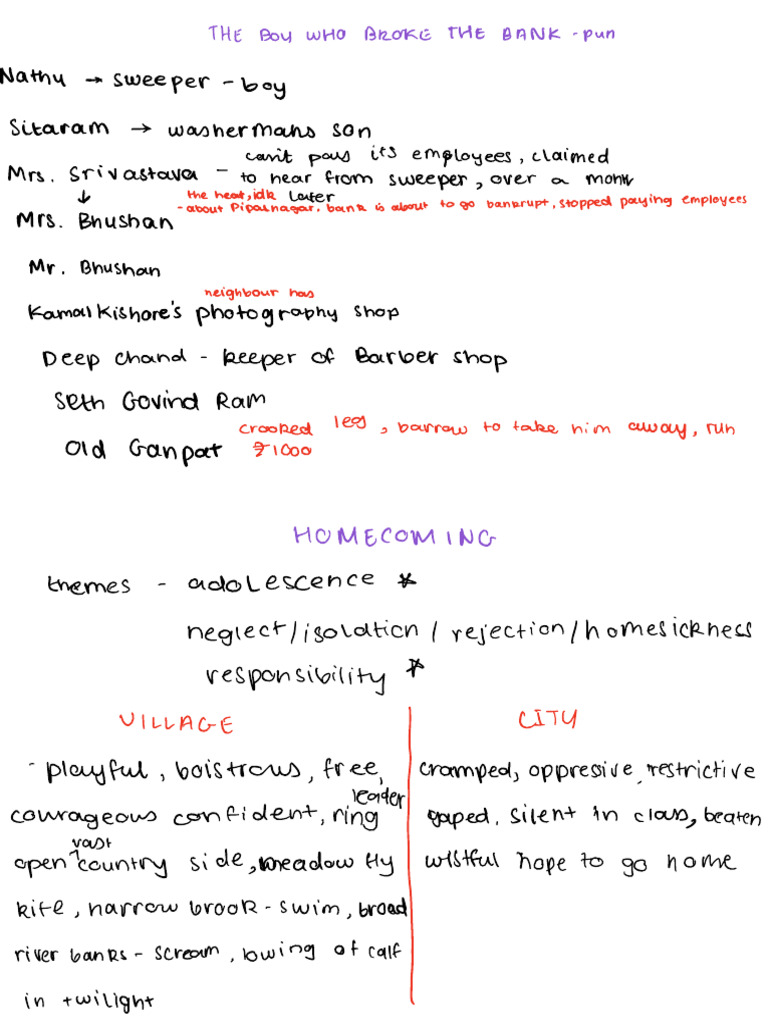 THE BOY WHO BROKE THE BANK - pun
Nathu → sweeper - boy
Sitaram → washermans son
can't pay its employees, claimed
Mrs. Srivastava - to hear from sweeper, over a month
↓ the heat, idk later
- about Pipalnagar. bank is about to go bankrupt, stopped paying employees
Mrs. Bhushan
Mr. Bhushan
neighbour has
Kamal Kishore's photography shop
Deep chand - keeper of Barber shop
Seth Govind Ram
Old Ganpat crooked leg, barrow to take him away, run
₹1000
HOMECOMING
themes - adolescence *
neglect/isolation / rejection/homesickness
responsibility *
VILLAGE
- playful, boistrous, free,
courageous confident, ring leader
open vast country side, meadow fly
kite, narrow brook - swim, broad
river banks - scream, lowing of calf
in twilight
CITY
cramped, oppressive, restrictive
gaped, silent in class, beaten
wistful hope to go home